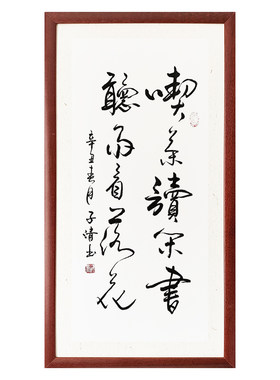 喫茶讀閑書
聽雨看落花
辛丑春月子靖书